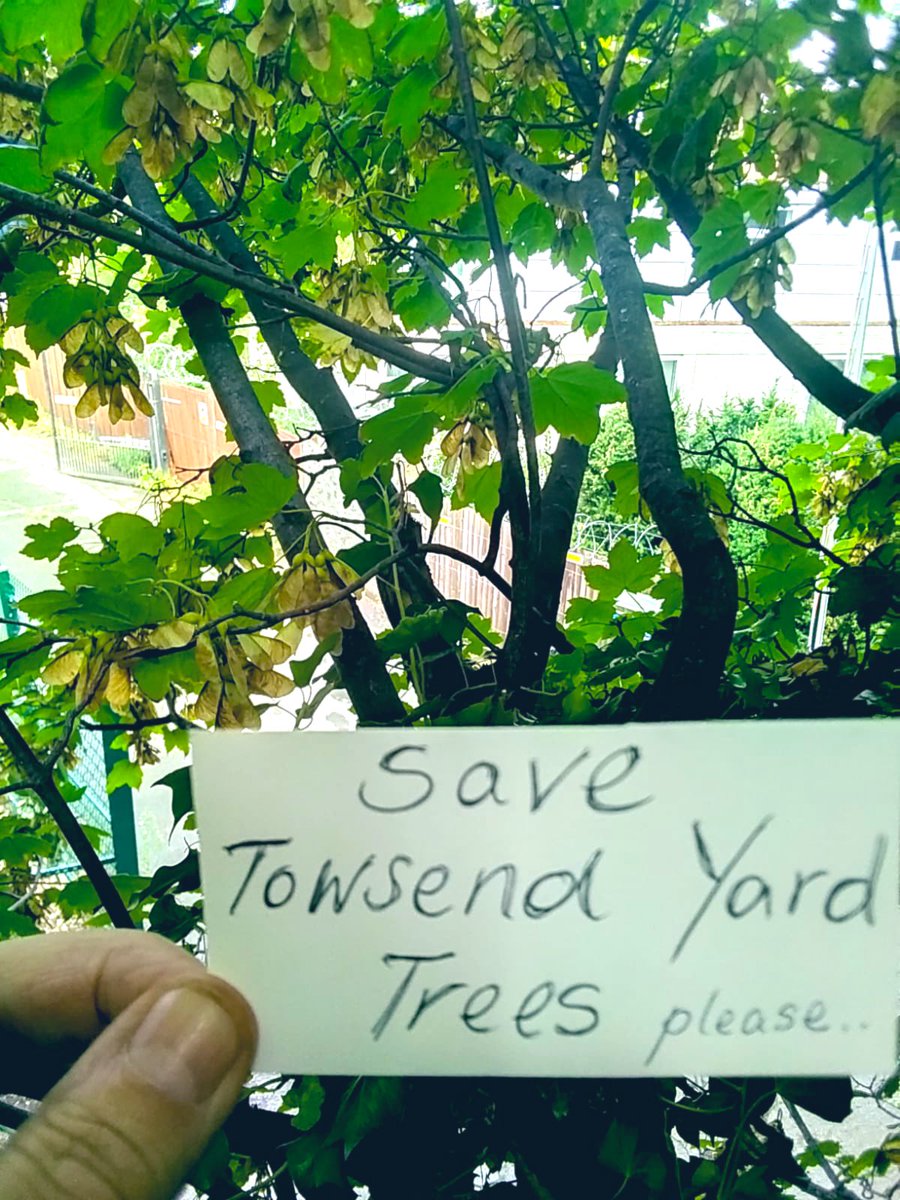 Save
Towsend Yard
Trees please..